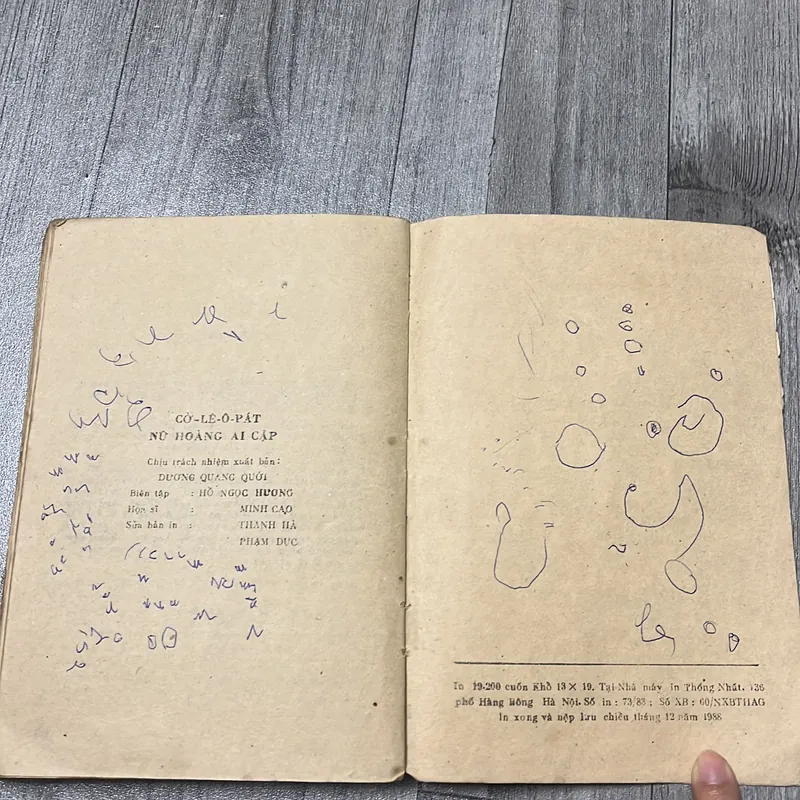 CỜ-LÊ-Ô-PÁT
NỮ HOÀNG AI CẬP
Chịu trách nhiệm xuất bản:
DƯƠNG QUANG QUỚI
Biên tập : HỒ NGỌC HƯƠNG
Họa sĩ : MINH CAO
Sửa bản in : THANH HÀ
PHẠM DỤC
In 19.200 cuốn Khổ 13 × 19. Tại Nhà máy in Thống Nhất. 136
phố Hàng Bông Hà Nội. Số in : 73/88 ; Số XB : 60/NXBTHAG
In xong và nộp lưu chiểu tháng 12 năm 1988